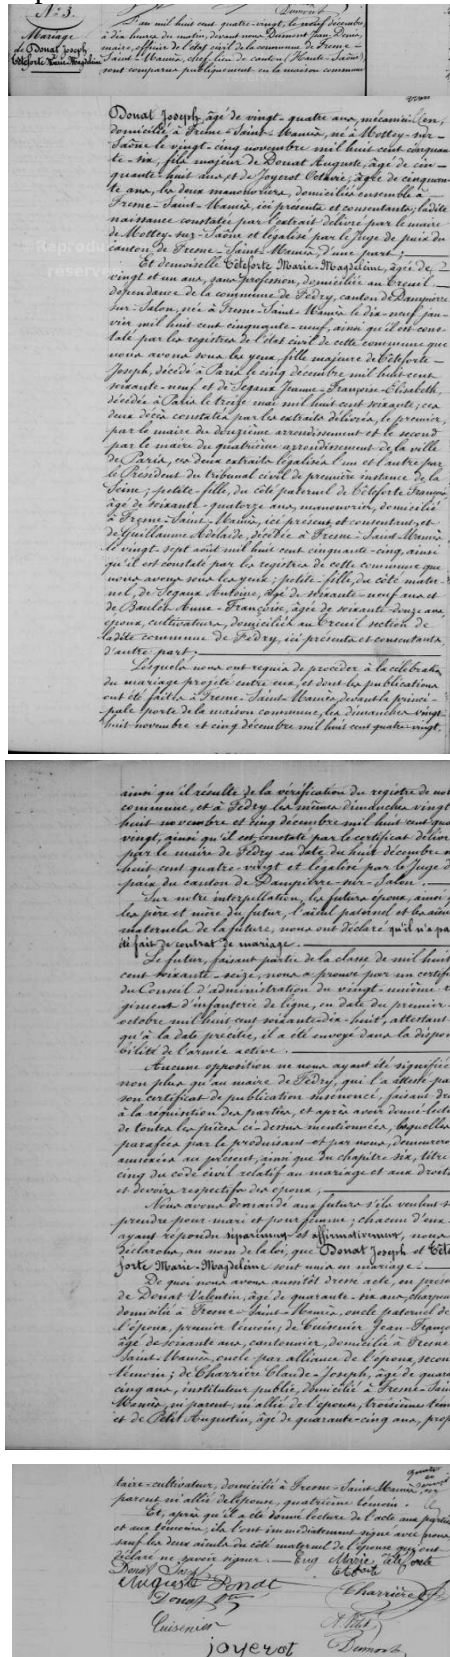 N° 3.
Mariage
de Donat Joseph
et Têteforte Marie-Magdeleine
L'an mil huit cent quatre-vingt, le neuf décembre
à dix heures du matin, devant nous Dumont Jean-Denis,
maire, officier de l'état civil de la commune de Fresne-
Saint-Mamès, chef-lieu de canton (Haute-Saône)
sont comparus publiquement en la maison commune
Donat Joseph, âgé de vingt-quatre ans, mécanicien,
domicilié à Fresne-Saint-Mamès, né à Mottey-sur-
Saône le vingt-cinq novembre mil huit cent cinquan-
te-six, fils majeur de Donat Auguste, âgé de cin-
quante-huit ans et de Joyerot Octavie, âgée de cinquan-
te ans, les deux manouvriers, domiciliés ensemble à
Fresne-Saint-Mamès, ici présents et consentants; ladite
naissance constatée par l'extrait délivré par le maire
de Mottey-sur-Saône et légalisé par le Juge de paix du
canton de Fresne-Saint-Mamès, d'une part;
Et demoiselle Têteforte Marie-Magdeleine, âgée de
vingt et un ans, sans profession, domiciliée au Creuil
dépendance de la commune de Fédry, canton de Dampierre-
sur-Salon, née à Fresne-Saint-Mamès le dix-neuf jan-
vier mil huit cent cinquante-neuf, ainsi qu'il est cons-
taté par les registres de l'état civil de cette commune que
nous avons sous les yeux, fille majeure de Têteforte
Joseph, décédé à Paris le cinq décembre mil huit cent
soixante-neuf et de Segaux Jeanne-Françoise-Elisabeth,
décédée à Paris le treize mai mil huit cent soixante; ces
deux décès constatés par les extraits délivrés, le premier,
par le maire du douzième arrondissement et le second
par le maire du quatrième arrondissement de la ville
de Paris, ces deux extraits légalisés l'un et l'autre par
le Président du tribunal civil de première instance de la
Seine; petite-fille, du côté paternel de Têteforte François
âgé de soixante-quatorze ans, manouvrier, domicilié
à Fresne-Saint-Mamès, ici présent et consentant, et
de Guillaume Adélaïde, décédée à Fresne-Saint-Mamès
le vingt-sept août mil huit cent cinquante-cinq, ainsi
qu'il est constaté par les registres de cette commune que
nous avons sous les yeux; petite-fille, du côté mater-
nel, de Segaux Antoine, âgé de soixante-neuf ans et
de Baulès Anne-Françoise, âgée de soixante-douze ans
époux, cultivateurs, domiciliés au Creuil section de
ladite commune de Fédry, ici présents et consentants,
d'autre part;
Lesquels nous ont requis de procéder à la célébration
du mariage projeté entre eux, et dont les publications
ont été faites à Fresne-Saint-Mamès, devant la princi-
pale porte de la maison commune, les dimanches vingt-
huit novembre et cinq décembre mil huit cent quatre-vingt,
ainsi qu'il résulte de la vérification du registre de not
commune, et à Fédry les mêmes dimanches vingt
huit novembre et cinq décembre mil huit cent qua
vingt, ainsi qu'il est constaté par le certificat délivré
par le maire de Fédry en date du huit décembre m
huit cent quatre-vingt et légalisé par le Juge d
paix du canton de Dampierre-sur-Salon.
Sur notre interpellation, les futurs époux, ainsi
les père et mère du futur, l'aïeul paternel et les aïeu
maternels de la future, nous ont déclaré qu'il n'a pa
été fait de contrat de mariage.
Le futur, faisant partie de la classe de mil huit
cent soixante-seize, nous a prouvé par un certifi
du Conseil d'administration du vingt-unième r
giment d'infanterie de ligne, en date du premier
octobre mil huit cent soixante-dix-huit, attestant
qu'à la date précitée, il a été envoyé dans la dispon
bilité de l'armée active.
Aucune opposition ne nous ayant été signifiée
non plus qu'au maire de Fédry, qui l'a attesté pa
son certificat de publication susénoncé, faisant dro
à la réquisition des parties, et après avoir donné lect
de toutes les pièces ci-dessus mentionnées, lesquelles
parafées par le produisant et par nous, demeurero
annexées au présent, ainsi que du chapitre six, titre
cinq du code civil relatif au mariage et aux droits
et devoirs respectifs des époux,
Nous avons demandé aux futurs s'ils veulent s
prendre pour mari et pour femme; chacun d'eux
ayant répondu séparément et affirmativement, nous
déclarons, au nom de la loi, que Donat Joseph et Têt
forte Marie-Magdeleine sont unis en mariage.
De quoi nous avons aussitôt dressé acte, en prése
de Donat Valentin, âgé de quarante-six ans, charpen
domicilié à Fresne-Saint-Mamès, oncle paternel de
l'époux, premier témoin; de Cuisenier Jean-Franço
âgé de soixante ans, cantonnier, domicilié à Fresne
Saint-Mamès, oncle par alliance de l'époux, secon
témoin; de Charrière Claude-Joseph, âgé de quara
cinq ans, instituteur public, domicilié à Fresne-Sain
Mamès, ni parent, ni allié de l'épouse, troisième tém
et de Petit Augustin, âgé de quarante-cinq ans, prop
taire-cultivateur, domicilié à Fresne-Saint-Mamès, ni
parent ni allié de l'épouse, quatrième témoin.
Et, après qu'il a été donné lecture de l'acte aux parties
et aux témoins, ils l'ont immédiatement signé avec nous
sauf les deux aïeuls du côté maternel de l'épouse qui ont
déclaré ne savoir signer. Marie têteforte
Donat
Auguste Donat
Donat
Charrière
Cuisenier
A. Petit
joyerot
Dumont